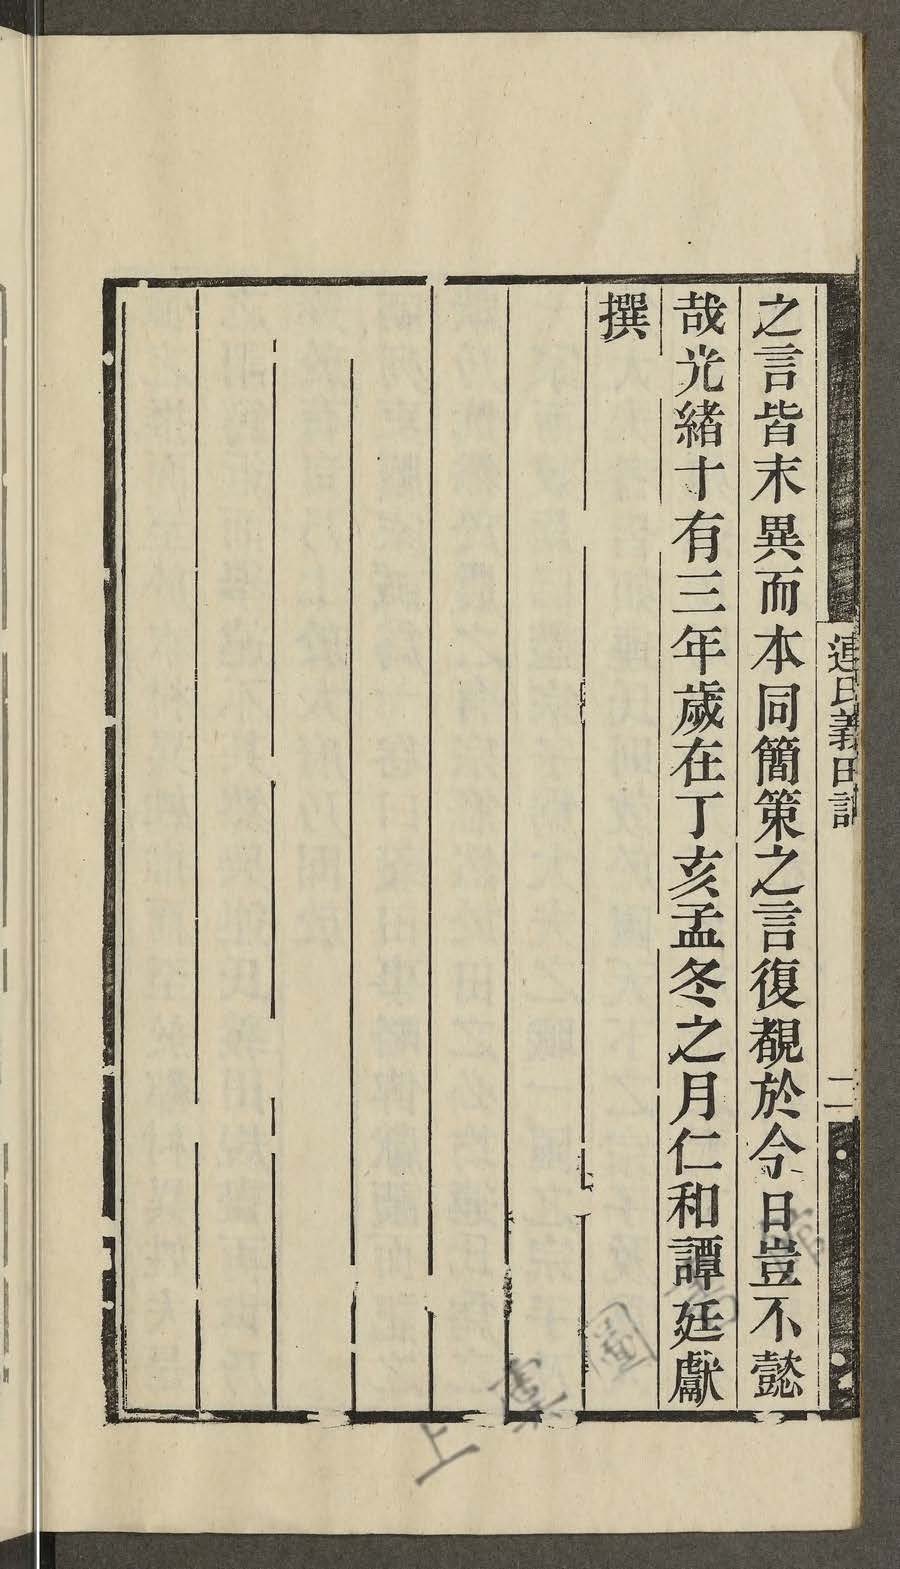 之言皆末異而本同簡策之言復覩於今日豈不懿
哉光緒十有三年歲在丁亥孟冬之月仁和譚廷獻
撰
連氏義田記
二
上虞圖書館